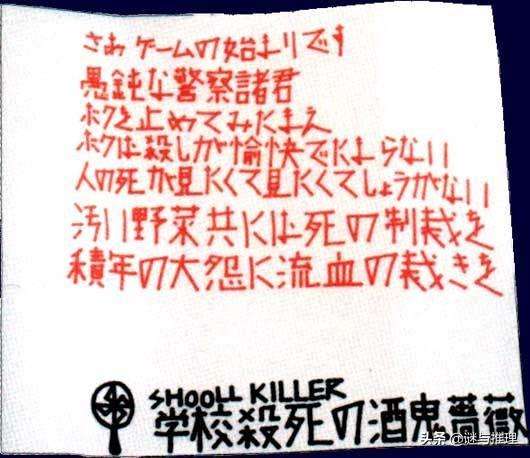 さあゲームの始まりです
愚鈍な警察諸君
ボクを止めてみたまえ
ボクは殺しが愉快でたまらない
人の死が見たくて見たくてしょうがない
汚い野菜共には死の制裁を
積年の大怨に流血の裁きを
SHOOLL KILLER
学校殺死の酒鬼薔薇
头条@谜与推理